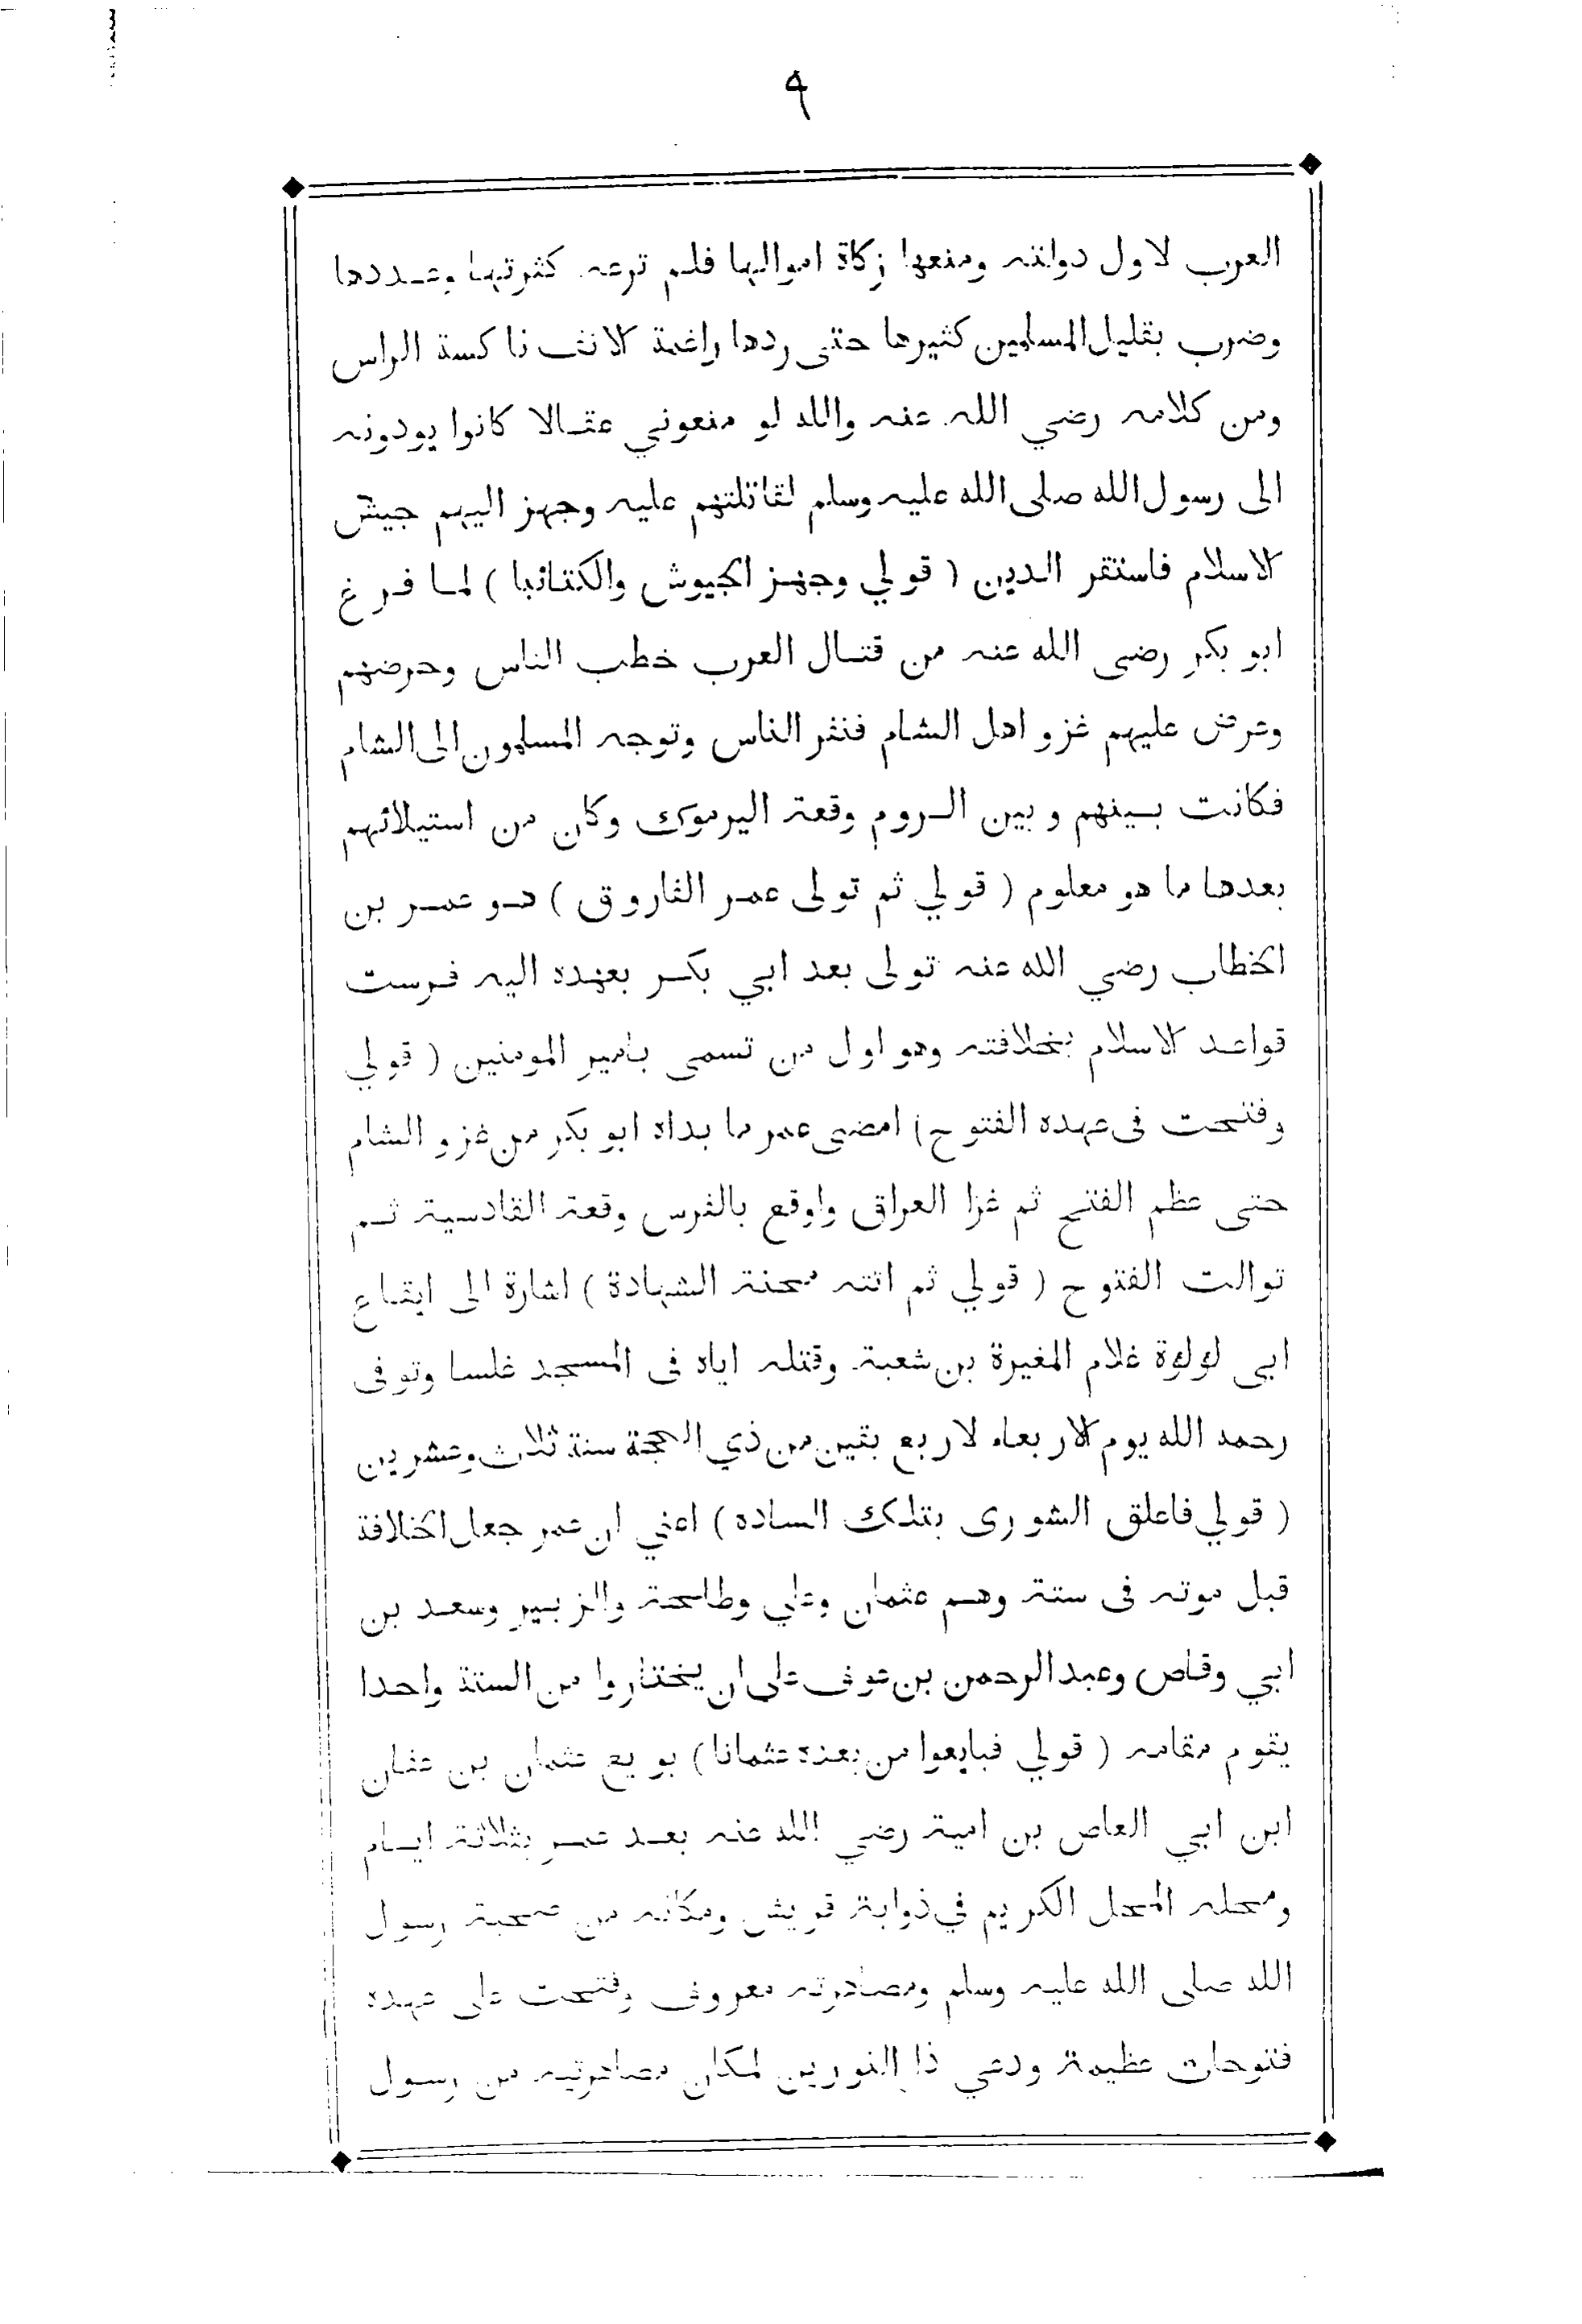 ٩
العرب لاول دولته ومنعها زكاة اموالها فلم ترعه كثرتها وعددها
وضرب بقليل المسلمين كثيرها حتى ردها راغمة الانف ناكسة الراس
ومن كلامه رضي الله عنه والله لو منعوني عقالا كانوا يودونه
الى رسول الله صلى الله عليه وسلم لقاتلتهم عليه وجهز اليهم جيش
الاسلام فاستقر الدين ( قولي وجهز الجيوش والكتائبا ) لما فرغ
ابو بكر رضى الله عنه من قتال العرب خطب الناس وحرضهم
وعرض عليهم غزو اهل الشام فنفر الناس وتوجه المسلمون الى الشام
فكانت بينهم وبين الروم وقعة اليرموك وكان من استيلائهم
بعدها ما هو معلوم ( قولي ثم تولى عمر الفاروق ) هو عمر بن
الخطاب رضي الله عنه تولى بعد ابي بكر بعهده اليه فرست
قواعد الاسلام بخلافته وهو اول من تسمى بامير المومنين ( قولي
وفتحت فى عهده الفتوح ) امضى عمر ما بداه ابو بكر من غزو الشام
حتى عظم الفتح ثم غزا العراق واوقع بالفرس وقعة القادسية ثم
توالت الفتوح ( قولي ثم اتته محنة الشهادة ) اشارة الى ايقاع
ابى لؤلؤة غلام المغيرة بن شعبة وقتله اياه فى المسجد غلسا وتوفى
رحمه الله يوم الاربعاء لاربع بقين من ذي الحجة سنة ثلاث وعشرين
( قولي فاعلق الشورى بتلك الساده ) اعني ان عمر جعل الخلافة
قبل موته فى ستة وهم عثمان وعلي وطلحة والزبير وسعد بن
ابي وقاص وعبد الرحمن بن عوف على ان يختاروا من الستة واحدا
يقوم مقامه ( قولي فبايعوا من بعده عثمانا ) بويع عثمان بن عفان
ابن ابي العاص بن امية رضي الله عنه بعد عمر بثلاثة ايام
ومحله المحل الكريم في ذوابة قريش ومكانه من صحبة رسول
الله صلى الله عليه وسلم ومصاهرته معروف وفتحت على عهده
فتوحات عظيمة ودعي ذا النورين لمكان مصاهرتيه من رسول